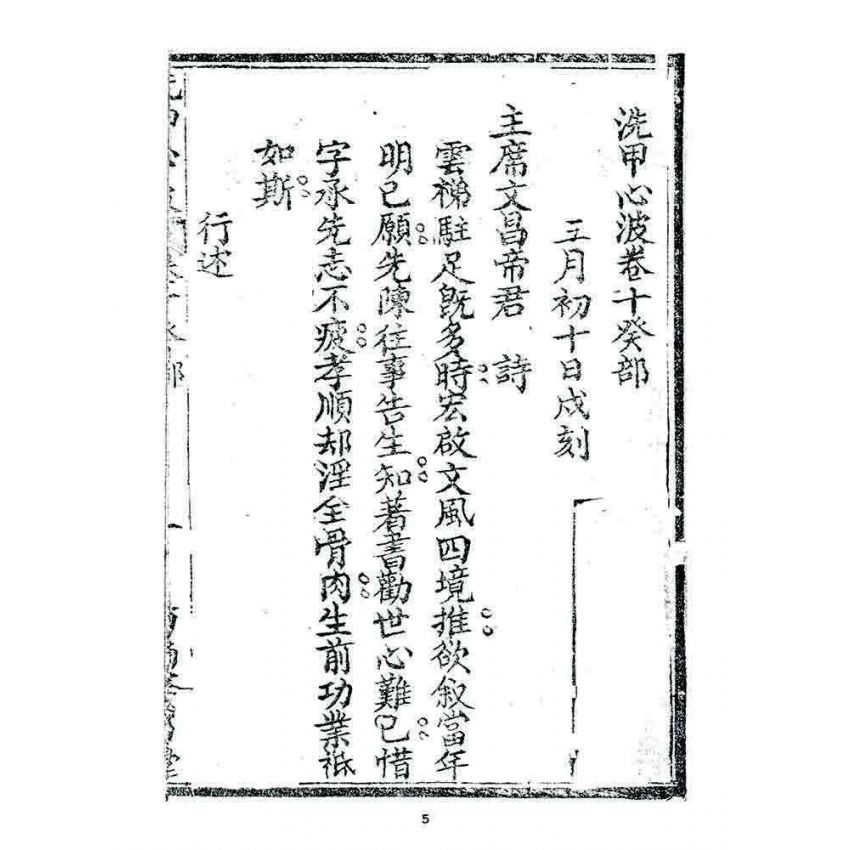 洗甲心波卷十癸部
三月初十日戌刻
主席文昌帝君　詩
雲梯駐足既多時宏啟文風四境推欲叙當年
明已願先陳往事告生知著書勸世心難已惜
字承先志不疲孝順却淫全骨肉生前功業祗
如斯
行述
5